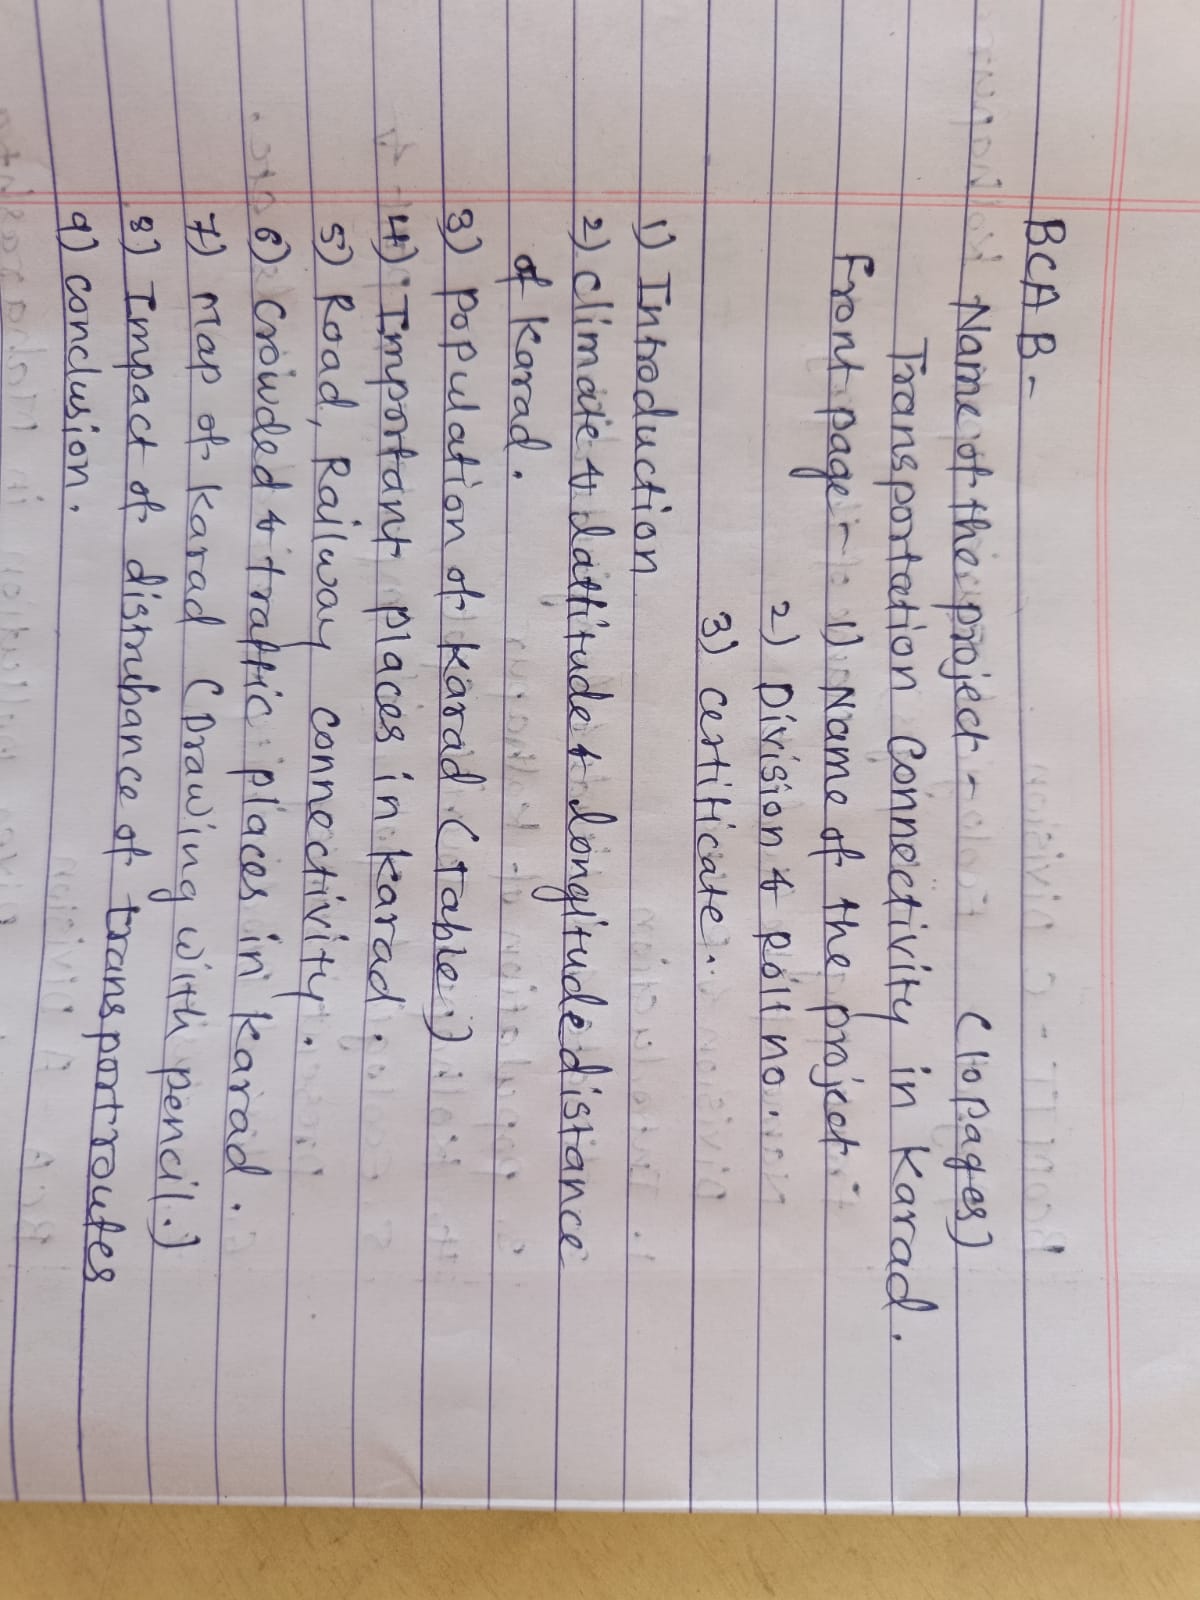 BCA B -
Name of the project - (10 pages)
Transportation Connectivity in Karad.
Front page - 1) Name of the project.
2) Division & Roll no.
3) certificate.
1) Introduction
2) climate & lattitude & longitude distance
of Karad.
3) population of Karad (table.)
4) Important places in karad.
5) Road, Railway connectivity.
6) Crowded & traffic places in Karad.
7) Map of Karad (Drawing with pencil.)
8) Impact of distrubance of transport routes
9) conclusion.